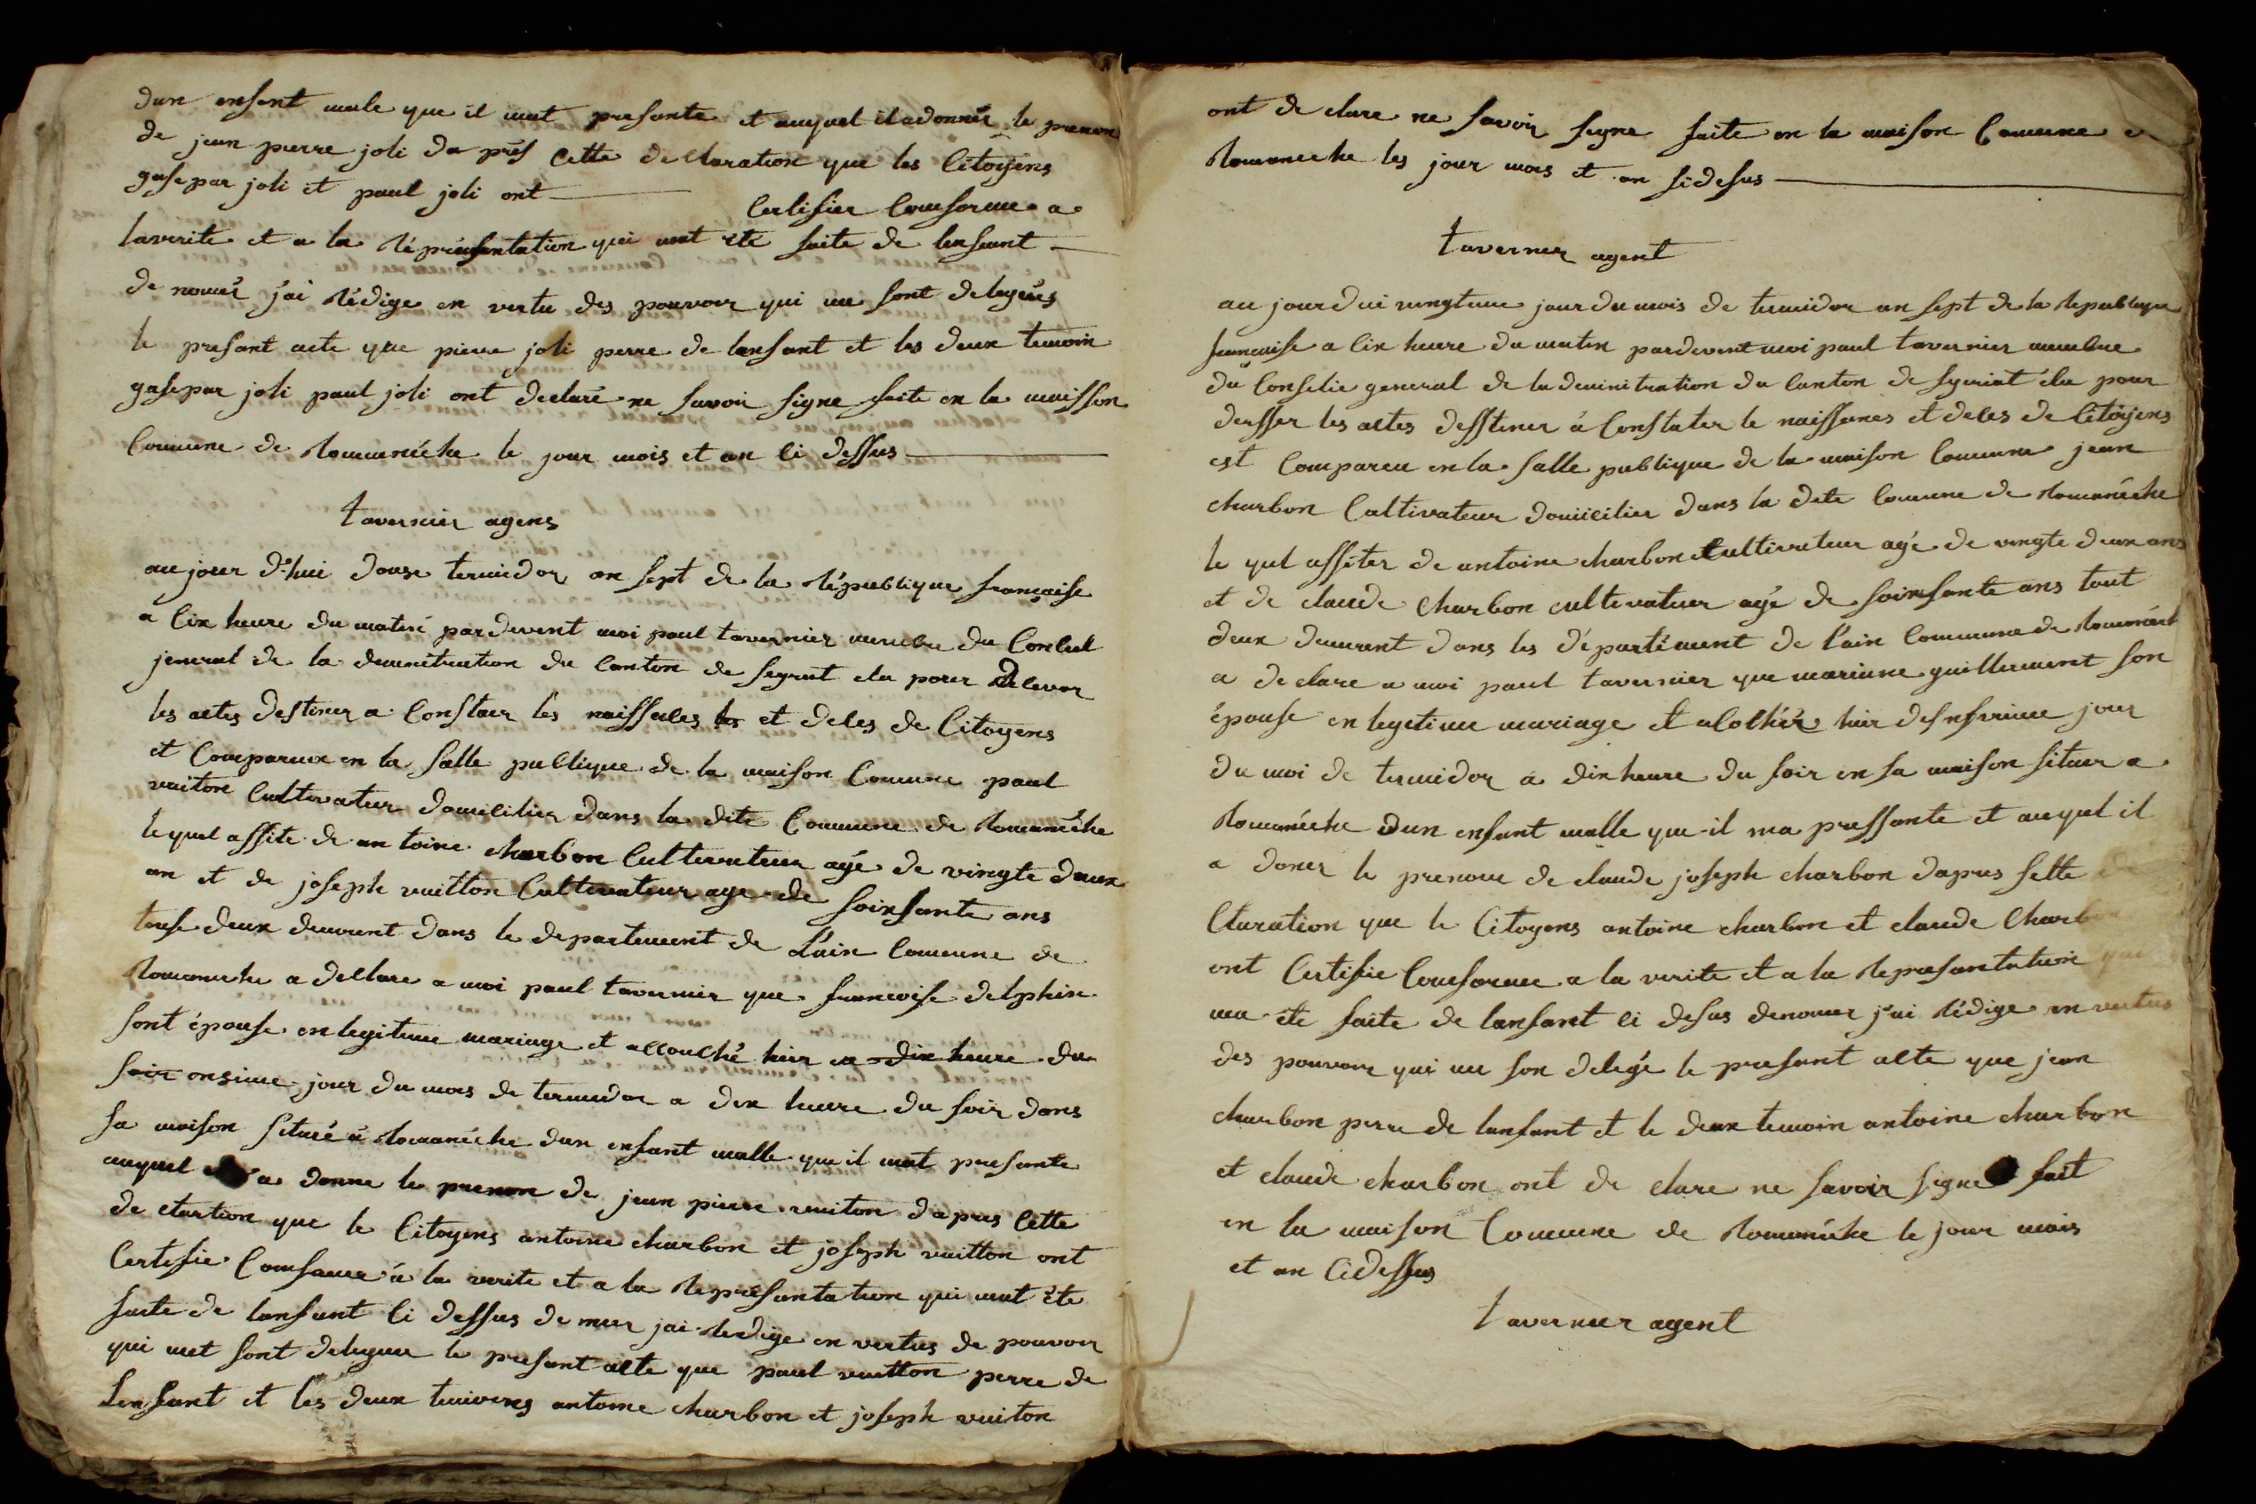 dun enfant male que il mat presante et auquel il a donnér le prenom
de jean pierre joli da prés cette declaration que les Citoyens
gasepar joli et paul joli ont certifier Conforme a
laverite et a la répräsentation qui mat ete faite de lenfant
de nomér j'ai rédige en vertu des pouvoir qui me sont deleguës
le presant acte que pierre joli perre de lanfant et les deux temoin
gasepar joli paul joli ont declaré ne savoir signe faite en la maisson
Comune de Romanéche le jour mois et an ci dessus
tavernier agens
aujour d'hui douse termidor an sept de la république française
a six heure du matin pardevent moi paul tavernier membre du Conseil
jeneral de la deministration du Canton de seyriat elu pour delevor
les actes destiner a Constaer les naissales et deles de Citoyens
et Comparuex en la salle publique de la maison Comune paul
vuiton Cultivateur domicilier dans la dite Comune de Romanéche
lequel assite de antoine charbon Cultivateur agé de vingte deux
an et de joseph vuitton Cultivateur age de soinsante ans
touse deux demeurent dans le departement de L'ain Comune de
Romaneche a declare a moi paul tavernier que francoise delphin
sont épouse en legitime mariage et accouché hier a dix heure du
soir onsime jour du mois de termidor a dix heure du soir dans
sa maison situé à Romanéche dun enfant malle que il mat presante
auquel a donne le prenom de jean pierre vuiton dapres cette
de clartion que le Citoyens antoine charbon et joseph vuitton ont
Certifie Comforme á la verite et a la représantation qui mat éte
faite de lanfant ci dessus de mer jai redige en vertus de pouvoir
qui met sont deleguer le presant acte que paul vuitton perre de
Lenfant et les deux temivens antoine charbon et joseph vuiton
ont de clare ne savoir signe faite en la maison Comune de
Romaneche les jour mois et an sidesus
tavernier agent
au jourdui vingteme jour du mois de termidor an sept de la Republique
francaise a six heure du matin pardevent moi paul tavernier membre
du Conselie general de la deministration du Canton de syriat élu pour
derssser les actes desstiner á Constater le naissanes et deles de Citoyens
est Compareu en la salle publique de la maison Comune jean
charbon Cultivateur domicilier dans la dite Comune de Romanéche
le quel assiter de antoine charbon Cultivateur agé de vingte deux ans
et de claude Charbon cultivateur agé de soinsante ans tout
deux demeurent dans les département de L'ain Commune de Romanéch
a declare a moi paul tavernier que marianne guillermont son
épouse en legitime mariage et a Cochér hier desnefvime jour
du moi de termidor á dix heure du soir en sa maison situer a
Romanéche dun enfant malle que-il ma pressante et auquel il
a doner le prenome de claude joseph charbon dapres sette de
Claration que le Citoyens antoine charbon et claude Charbon
ont Certifie Comforme a la verite et a la represantation que
ma éte faite de lanfant ci desus denomer j'ai rédige en vertus
des pouvoir qui me son delegé le presant acte que jean
charbon perre de lanfant et le deux temoin antoine charbon
et claude charbon ont de clare ne savoir signe fait
en la maison Comune de Romanéche le jour mois
et an Cidessus
tavernier agent